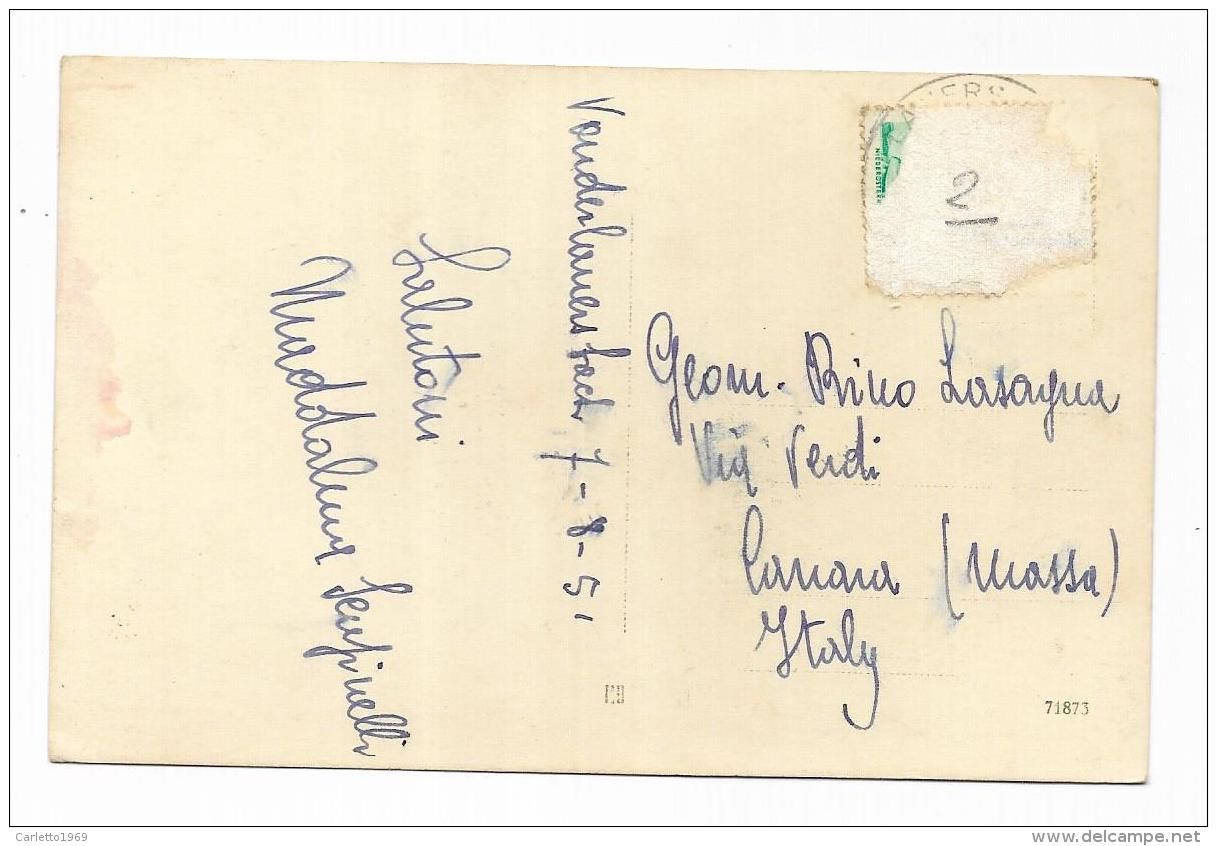 IERS
NIEDERÖSTERR
2
7-8-51
Salutoni
Maddalena Serpinelli
Geom. Rino Lasagna
Via Verdi
Carrara (Massa)
Italy
71873
Carletto1969
www.delcampe.net